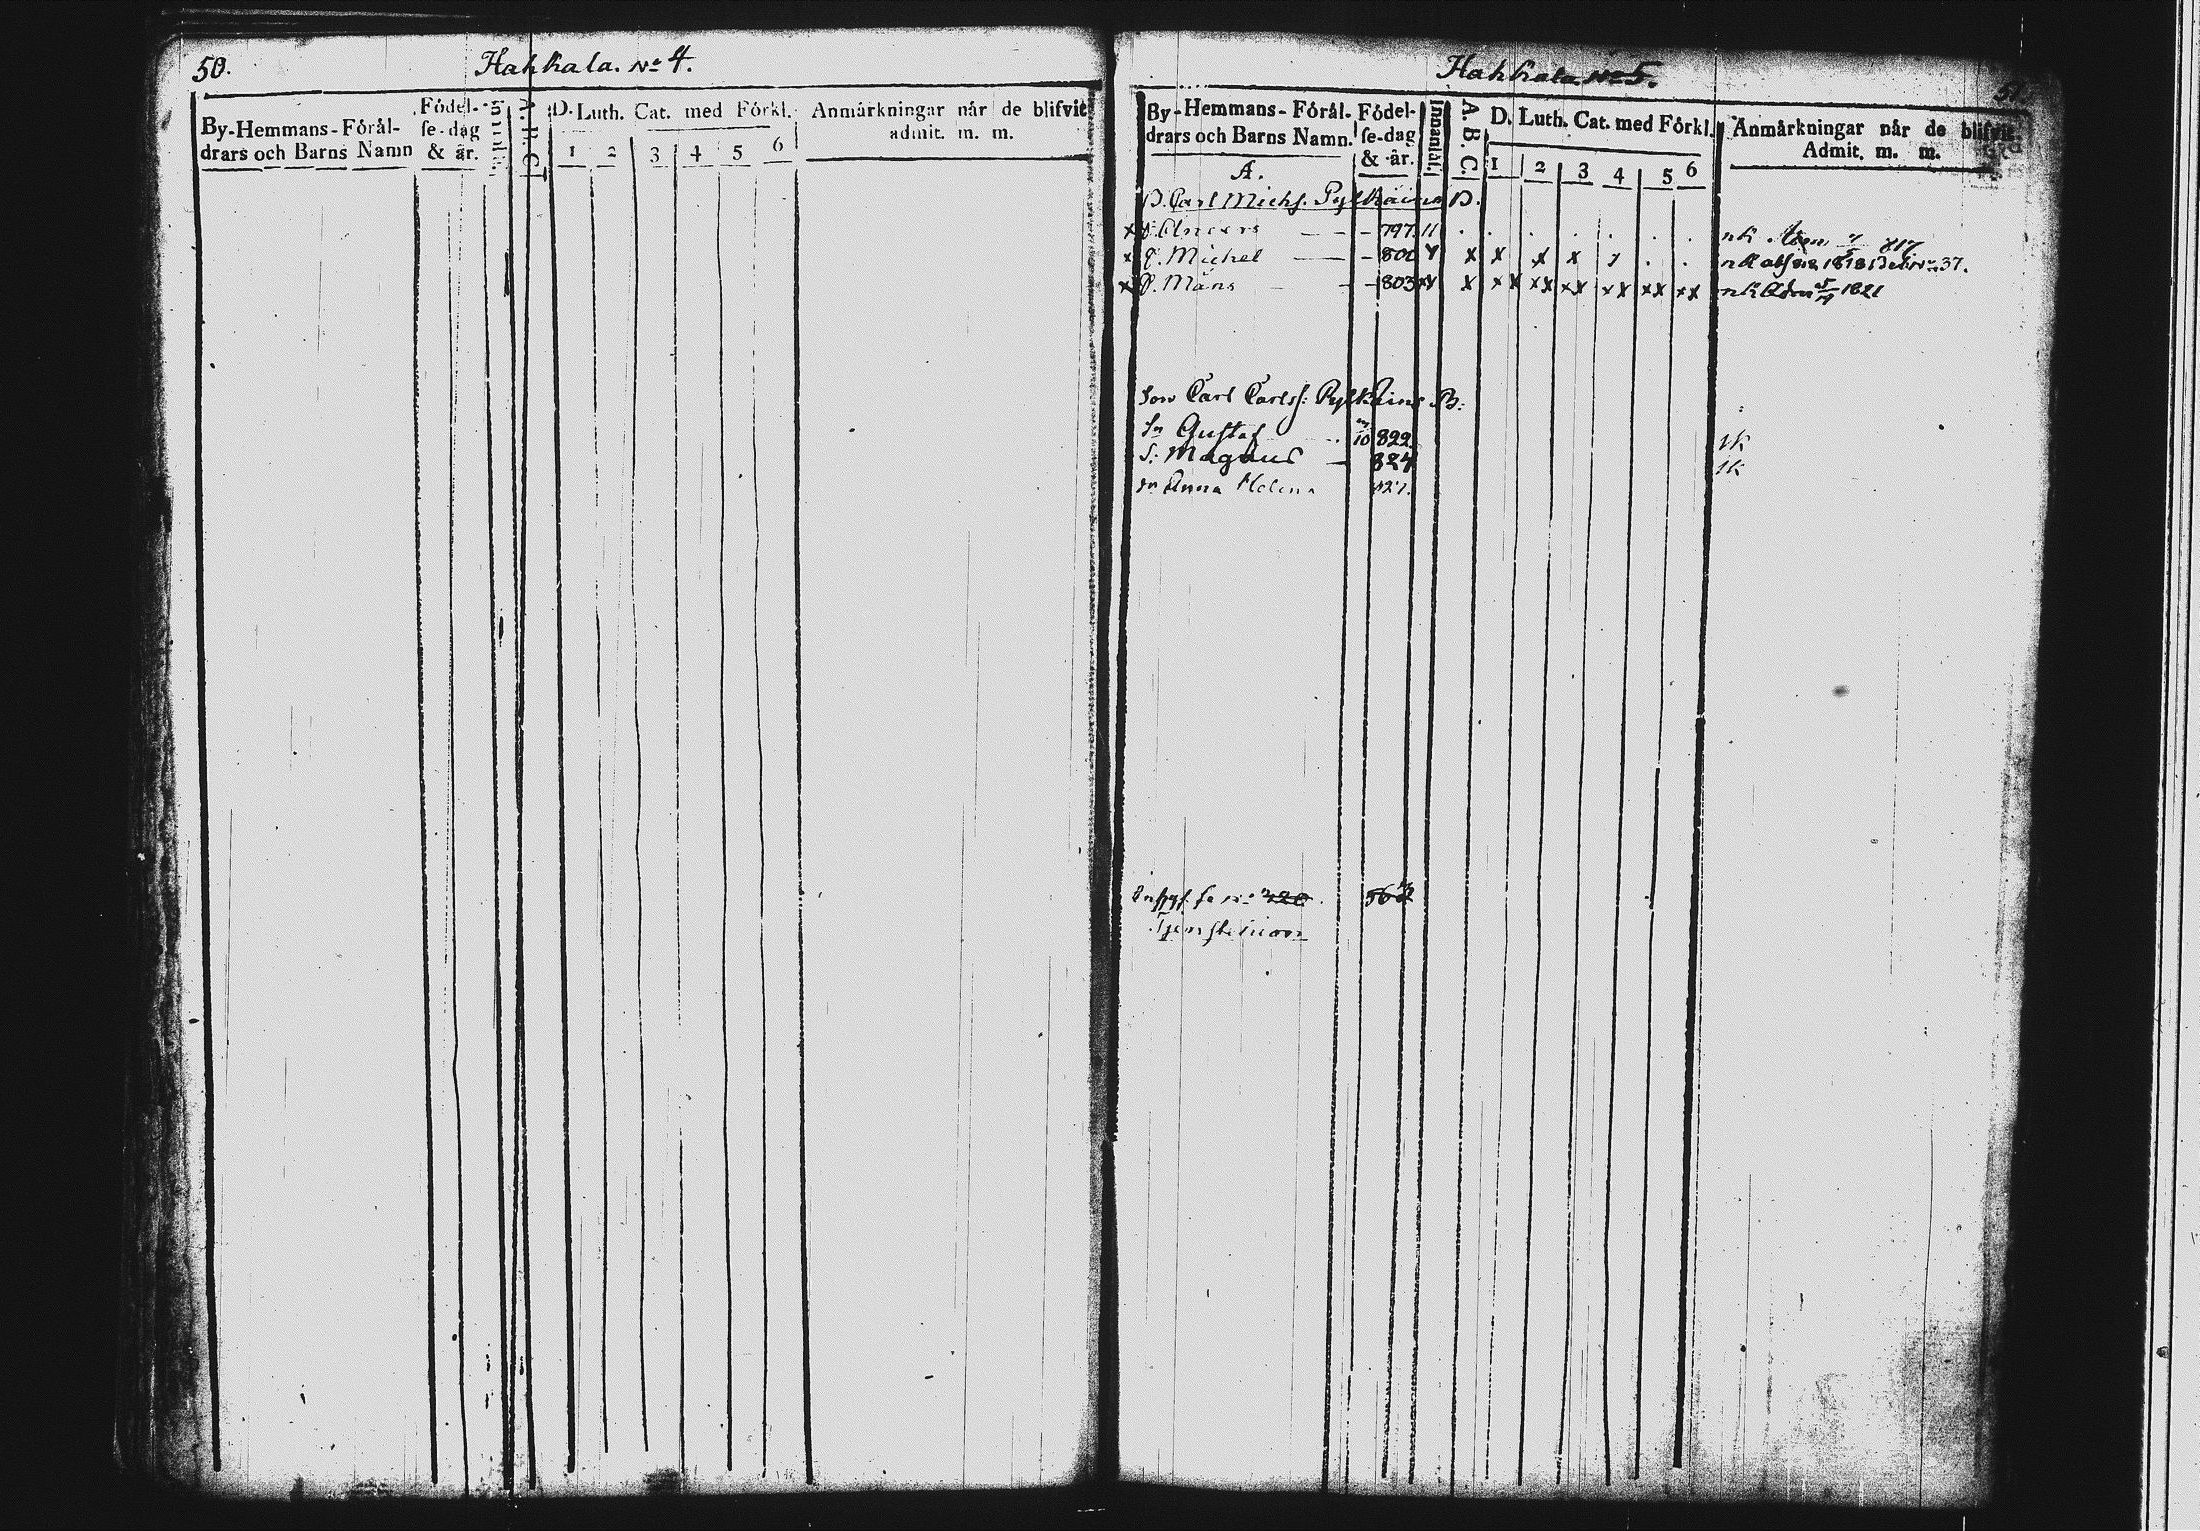 50.
Hahkala. No 4.
By-Hemmans-Förål-
drars och Barns Namn
Födel-
se-dag
& år.
A. B. C.
D. Luth. Cat. med Förkl.
1 2 3 4 5 6
Anmårkningar når de blifvit
admit. m. m.
Hahkala No 5.
51.
By-Hemmans-Förål-
drars och Barns Namn.
Födel-
se-dag
& år.
Innanlåt.
A. B. C.
D. Luth. Cat. med Förkl.
1 2 3 4 5 6
Anmårkningar når de blifvit
Admit. m. m.
A.
B. Carl Michs. Pylkäinen B.
x S. Anders — — 797. 11 nk 817
x S. Michel — — 801 x x x x x nk 1818 No 37.
x S. Måns — — 803 xx x xx xx xx xx xx xx nk 1821
Son Carl Carlss: Pylkäine B:
Sn Gustaf 10 822. nk
S: Magnus — 824 nk
Dr Anna Helena 827.